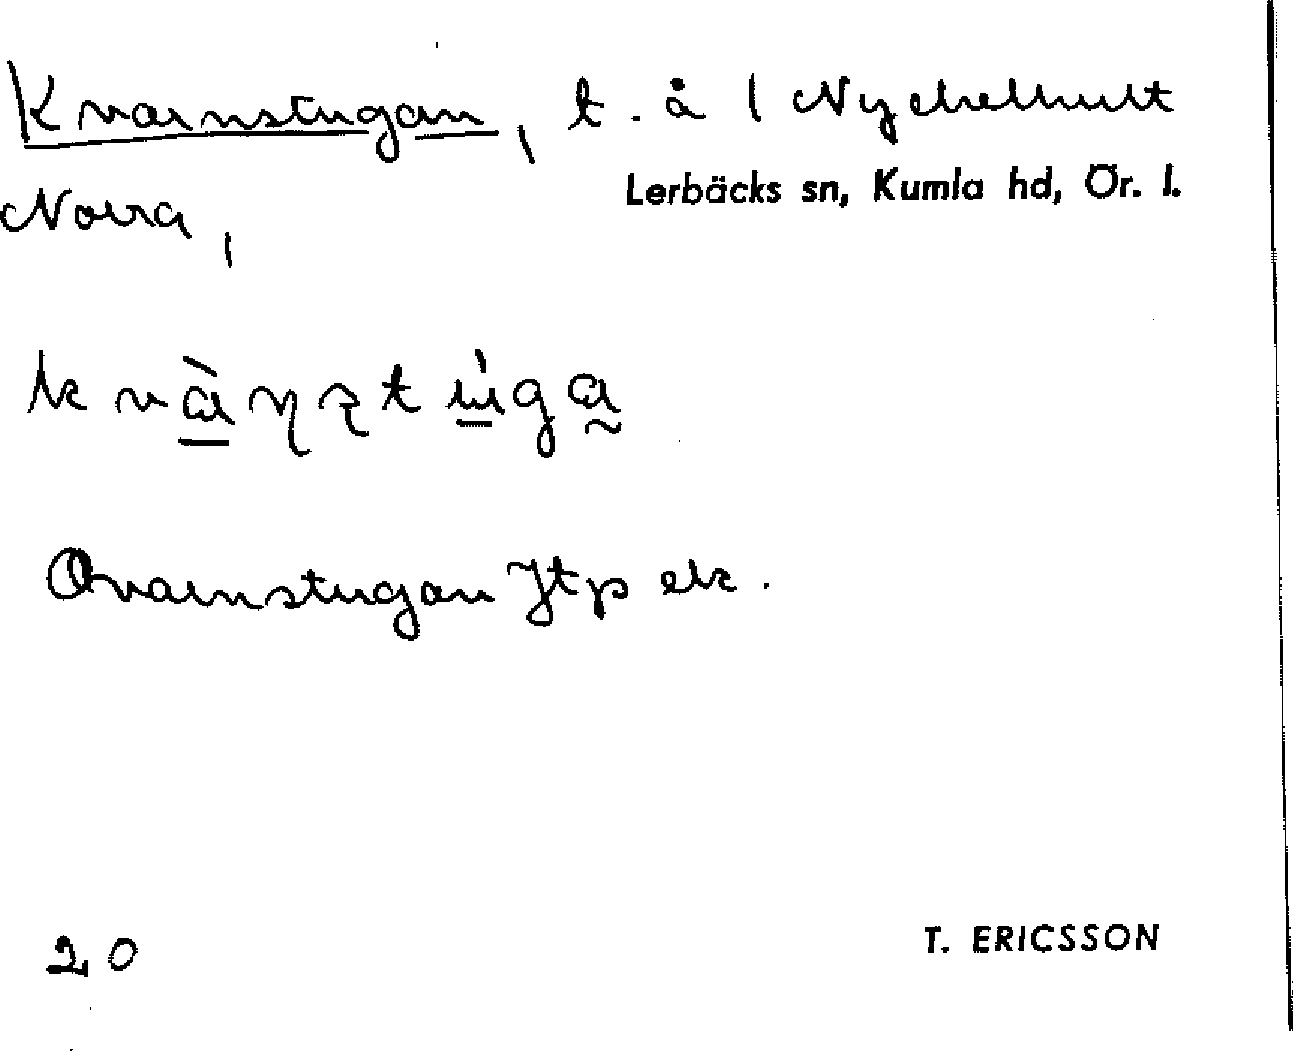 Kvarnstugan, t. å 1 Nyckelhult
Lerbäcks sn, Kumla hd, Ör. l.
Norra,
Qvarnstugan Jtp ek.
20
T. ERICSSON